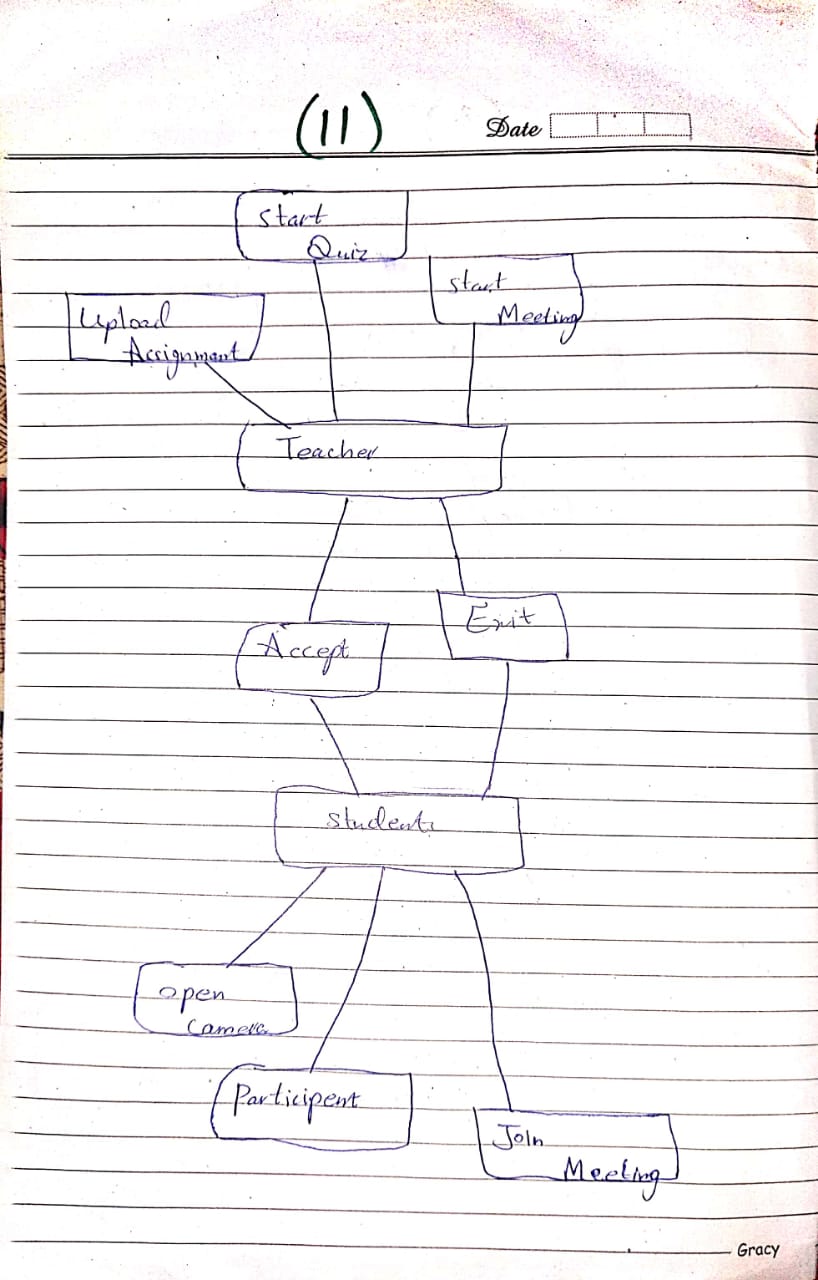 (11)
Date
Start
Quiz
Start
Meeting
Upload
Assignment
Teacher
Exit
Accept
Students
Open
Camera
Participent
Join
Meeting
Gracy